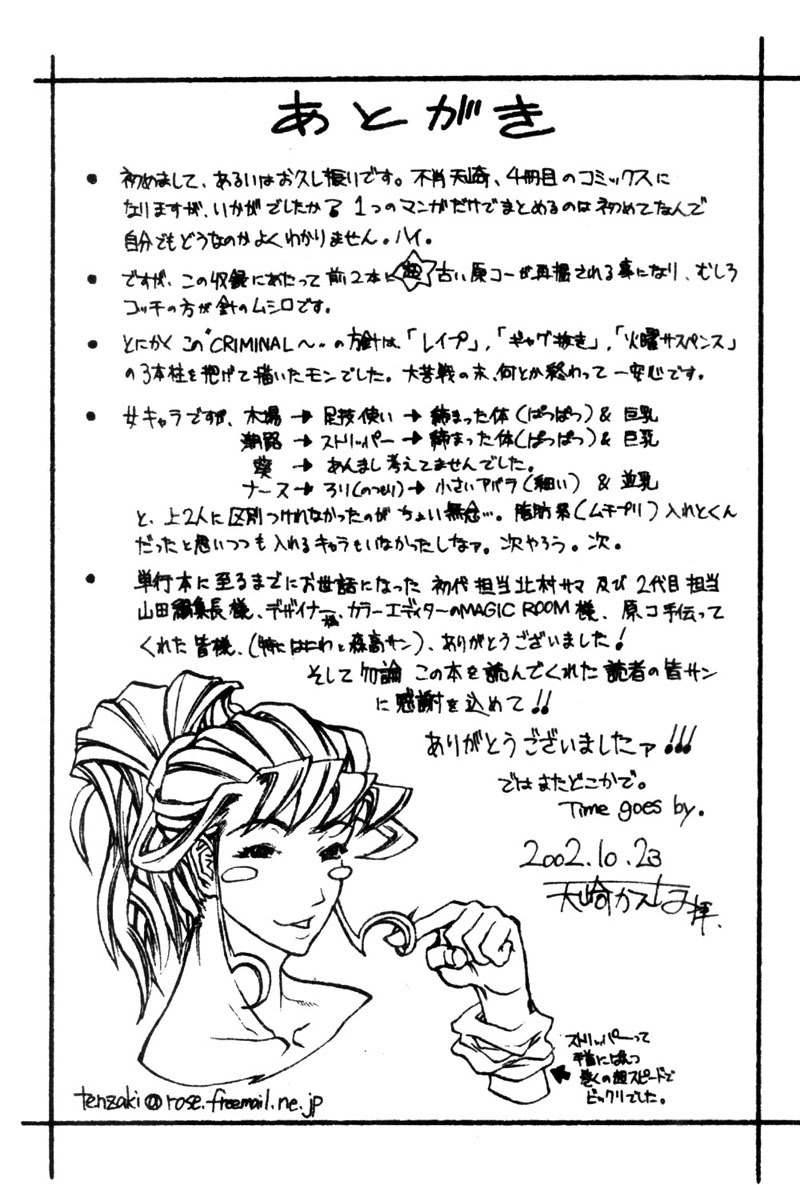 あとがき
• 初めまして、あるいはお久し振りです。不肖天崎、4冊目のコミックスに
なりますが、いかがでしたか？1つのマンガだけでまとめるのは初めてなんで
自分でもどうなのかよくわかりません。ハイ。
• ですが、この収録にあたって前2本に超古い原コーが再掲される事になり、むしろ
コッチの方が針のムシロです。
• とにかくこの"CRIMINAL〜"の方針は、「レイプ」,「ギャグ抜き」,「火曜サスペンス」
の3本柱を掲げて描いたモンでした。大苦戦の末、何とか終わって一安心です。
• 女キャラですが、木場→足技使い→締まった体(ぱっぱつ)&巨乳
潮路→ストリッパー→締まった体(ぱっぱつ)&巨乳
葵→あんまし考えてませんでした。
ナース→ろリ(のつもり)→小さいアバラ(細い)&並乳
と、上2人に区別つけれなかったのがちょい無念…。脂肪系(ムチプリ)入れとくん
だったと思いつつも入れるキャラもいなかったしなァ。次やろう。次。
• 単行本に至るまでにお世話になった初代担当北村サマ及び2代目担当
山田編集長様、デザイナー様、カラーエディターのMAGIC ROOM様、原コ手伝って
くれた皆様、(特にはにわと森高サン)、ありがとうございました!
そして勿論この本を読んでくれた読者の皆サン
に感謝を込めて!!
ありがとうございましたァ!!!
ではまたどこかで。
Time goes by.
2002.10.23
天崎かんな拝.
ストリッパーって
手首にぱんつ
巻くの超スピードで
ビックリでした。
tenzaki@rose.freemail.ne.jp